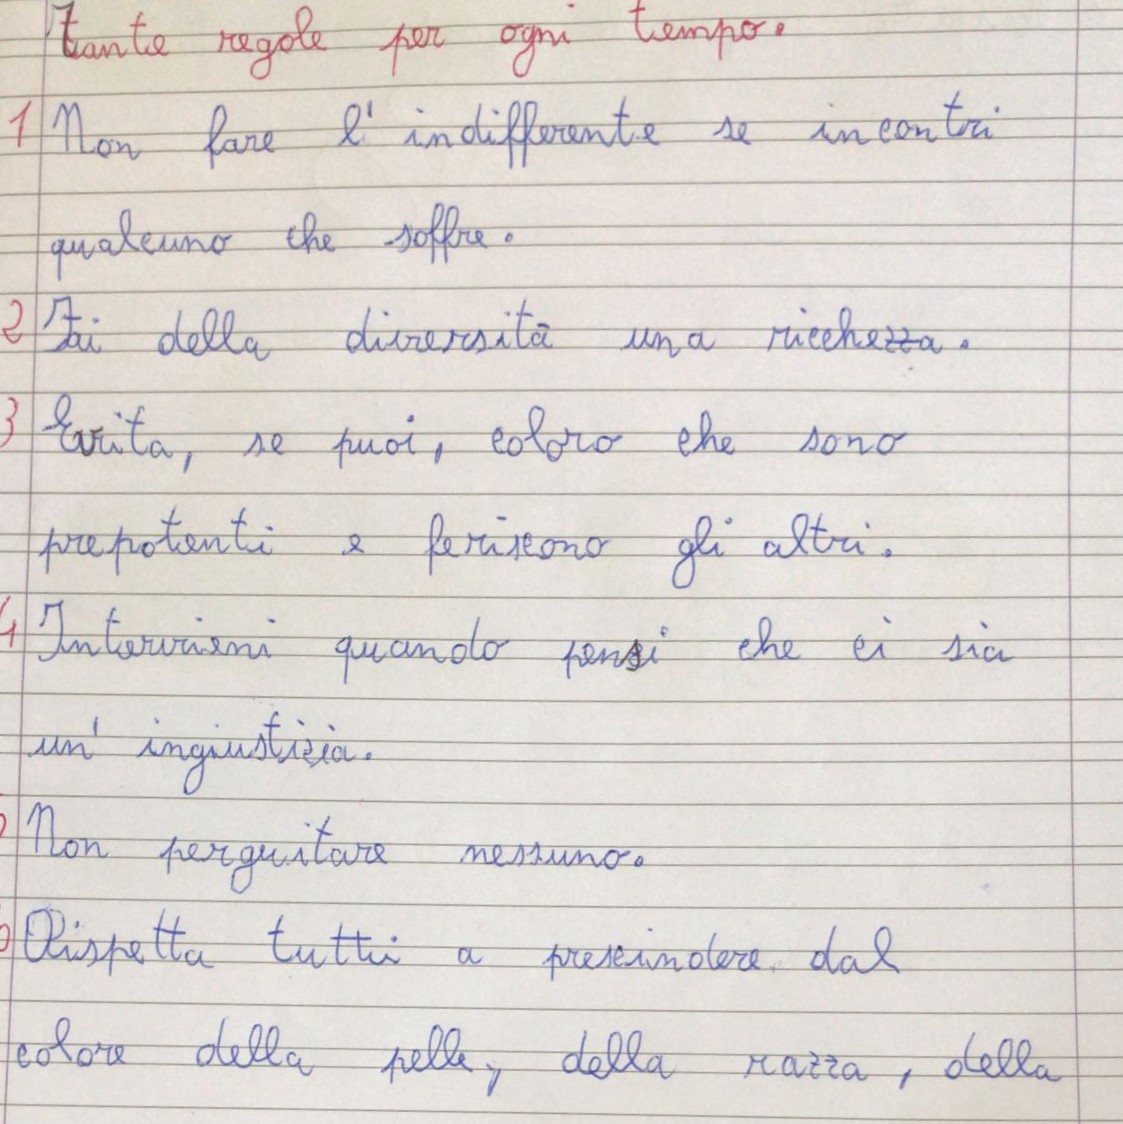 Tante regole per ogni tempo.
1 Non fare l'indifferente se incontri
qualcuno che soffre.
2 Fai della diversità una ricchezza.
3 Evita, se puoi, coloro che sono
prepotenti e feriscono gli altri.
4 Intervieni quando pensi che ci sia
un'ingiustizia.
Non perguitare nessuno.
Rispetta tutti a prescindere dal
colore della pelle, della razza, della